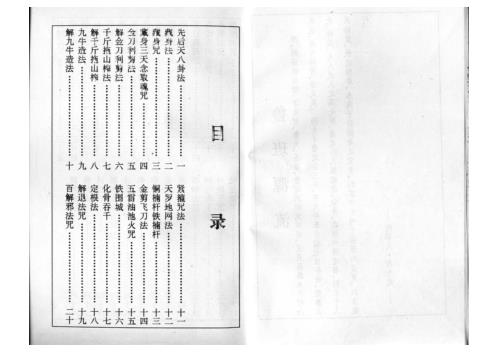 目录
先后天八卦法………一
藏身法………二
藏身咒………三
藏身三天念取魂咒………四
金刀利剪法………五
解金刀利剪法………六
千斤拖山榨法………七
解千斤拖山榨………八
九牛造法………九
解九牛造法………十
紧箍咒法………十一
天罗地网法………十二
铜楠杆铁楠杆………十三
金剪飞刀法………十四
五雷油池火咒………十五
铁围城………十六
化骨吞千………十七
定根法………十八
解退法咒………十九
百解邪法咒………二十